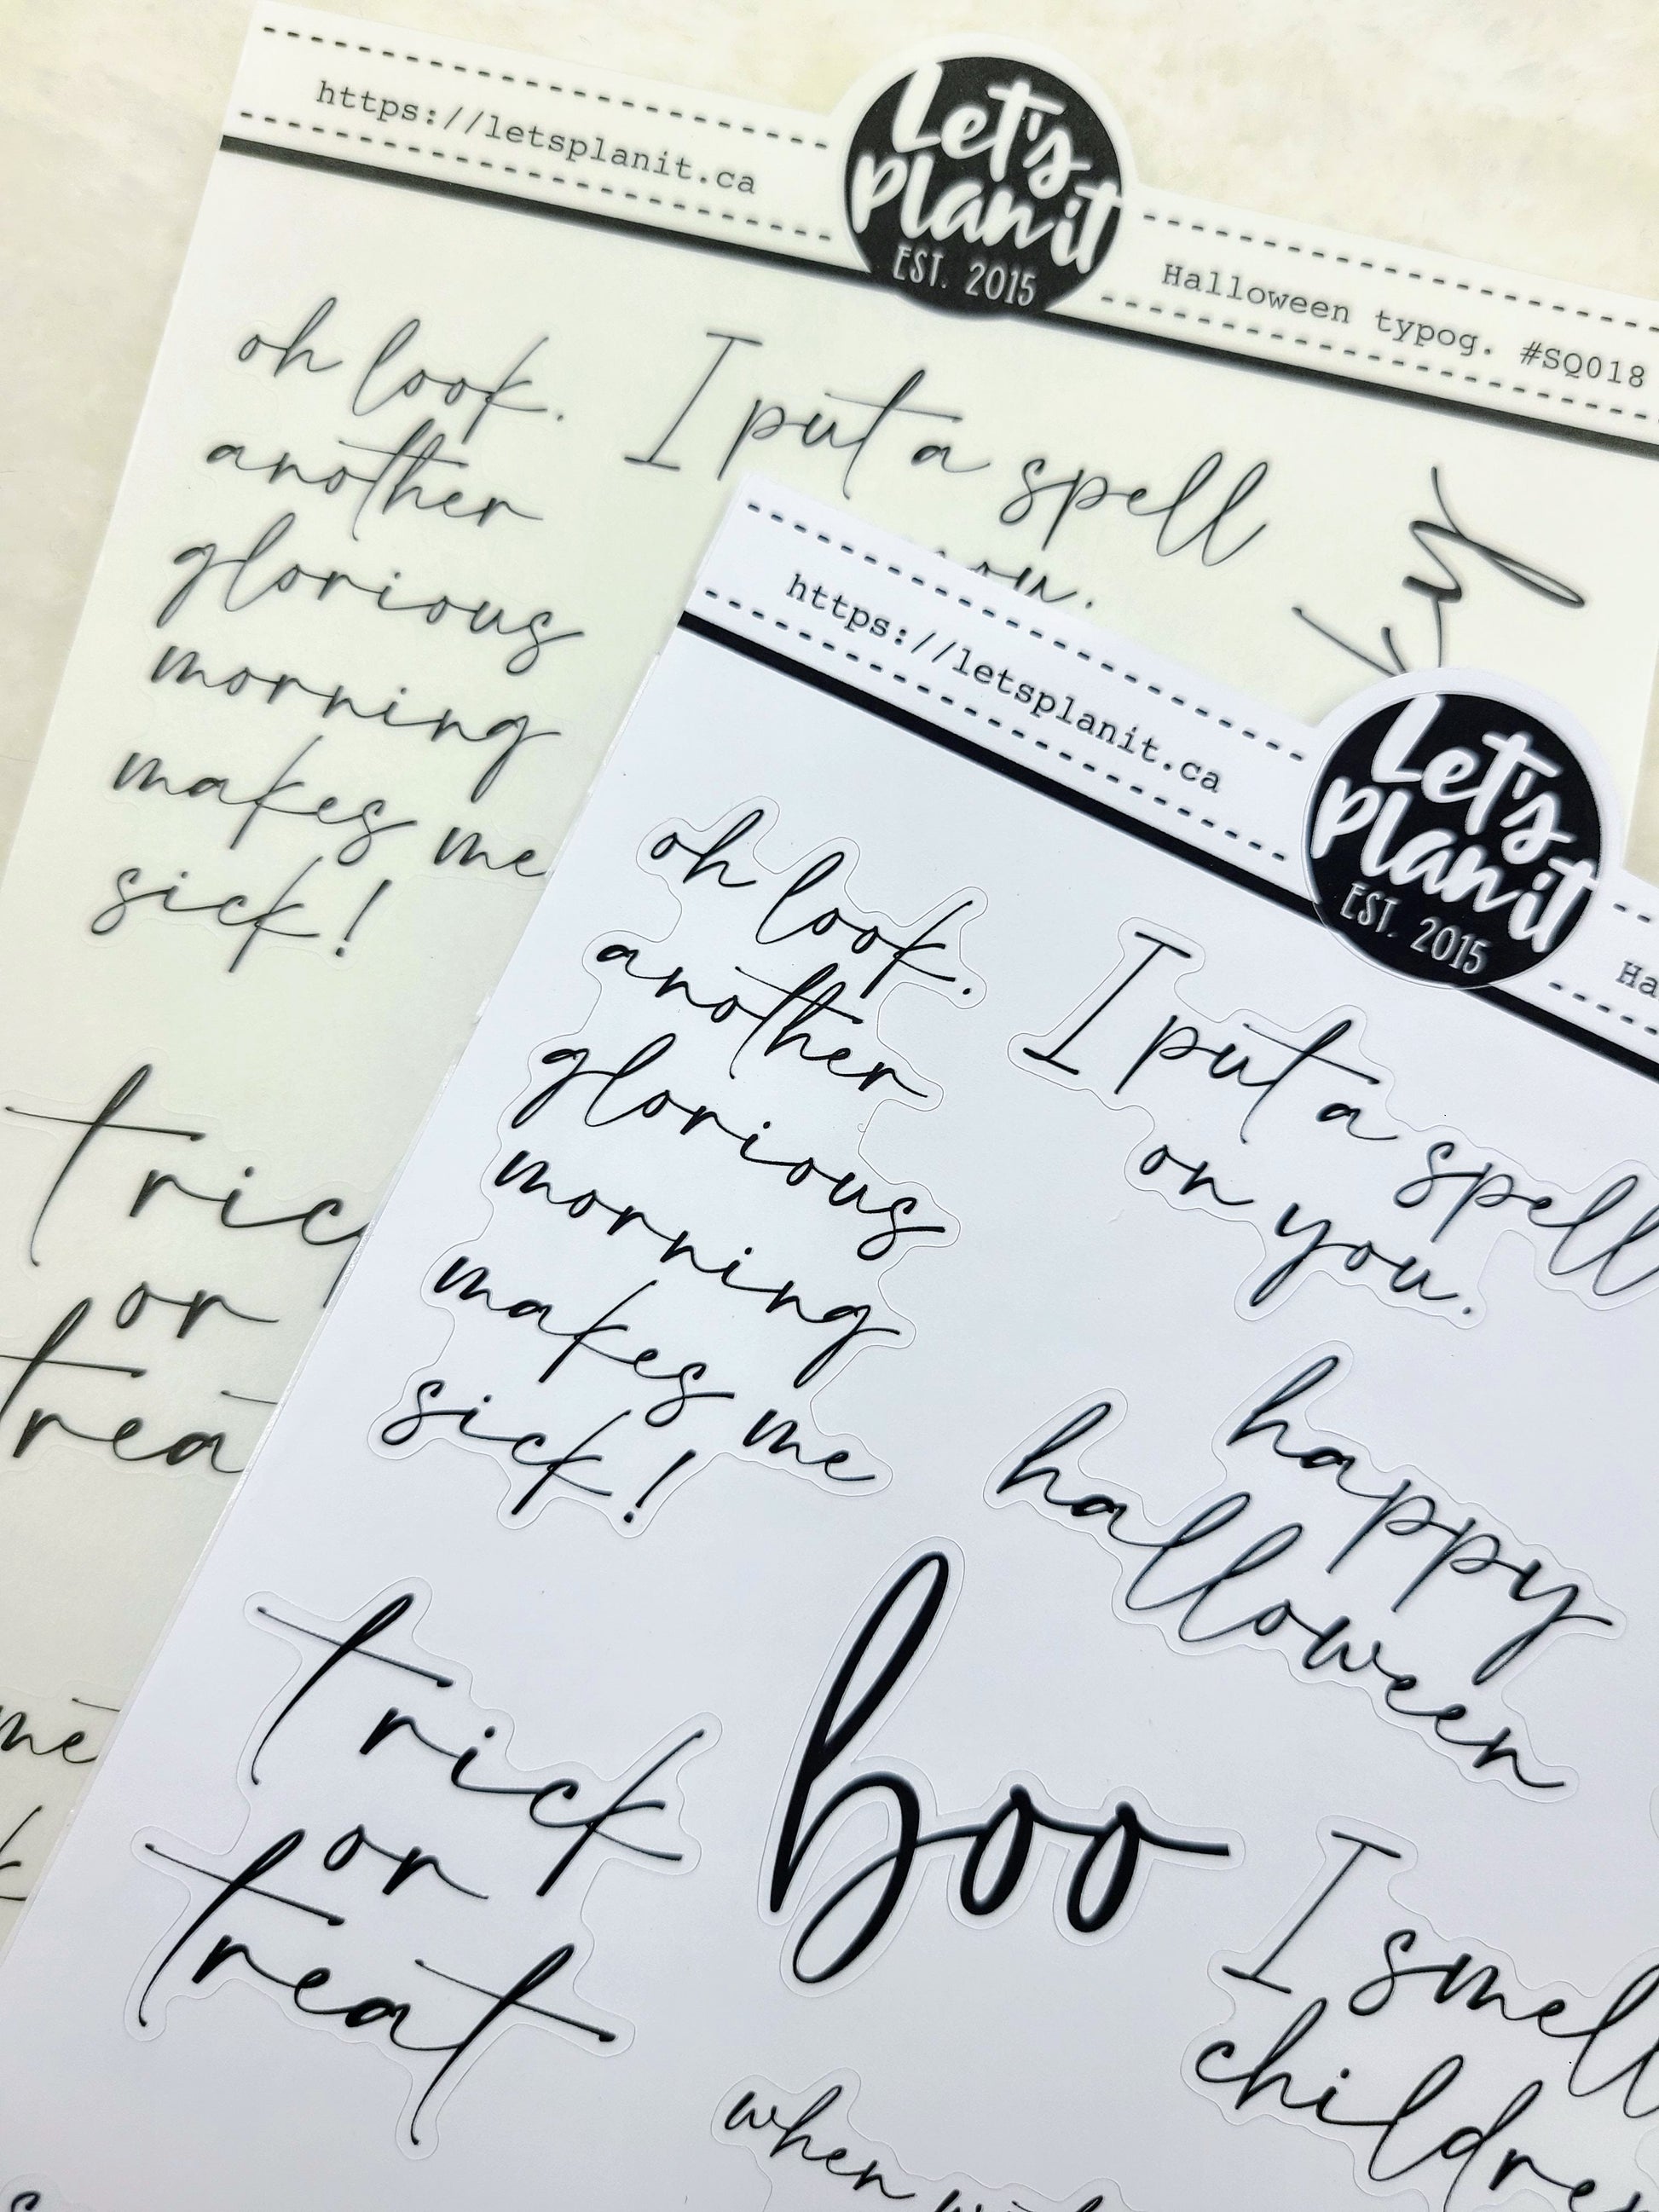 https://letsplanit.ca
Let's
Plan it
EST. 2015
Halloween typog. #SQ018
oh look.
another
glorious
morning
makes me
sick!
I put a spell
you.
trick
or
https://letsplanit.ca
Let's
Plan it
EST. 2015
oh look.
another
glorious
morning
makes me
sick!
I put a spell
on you.
happy
halloween
trick
or
treat
boo
I smell
children
when